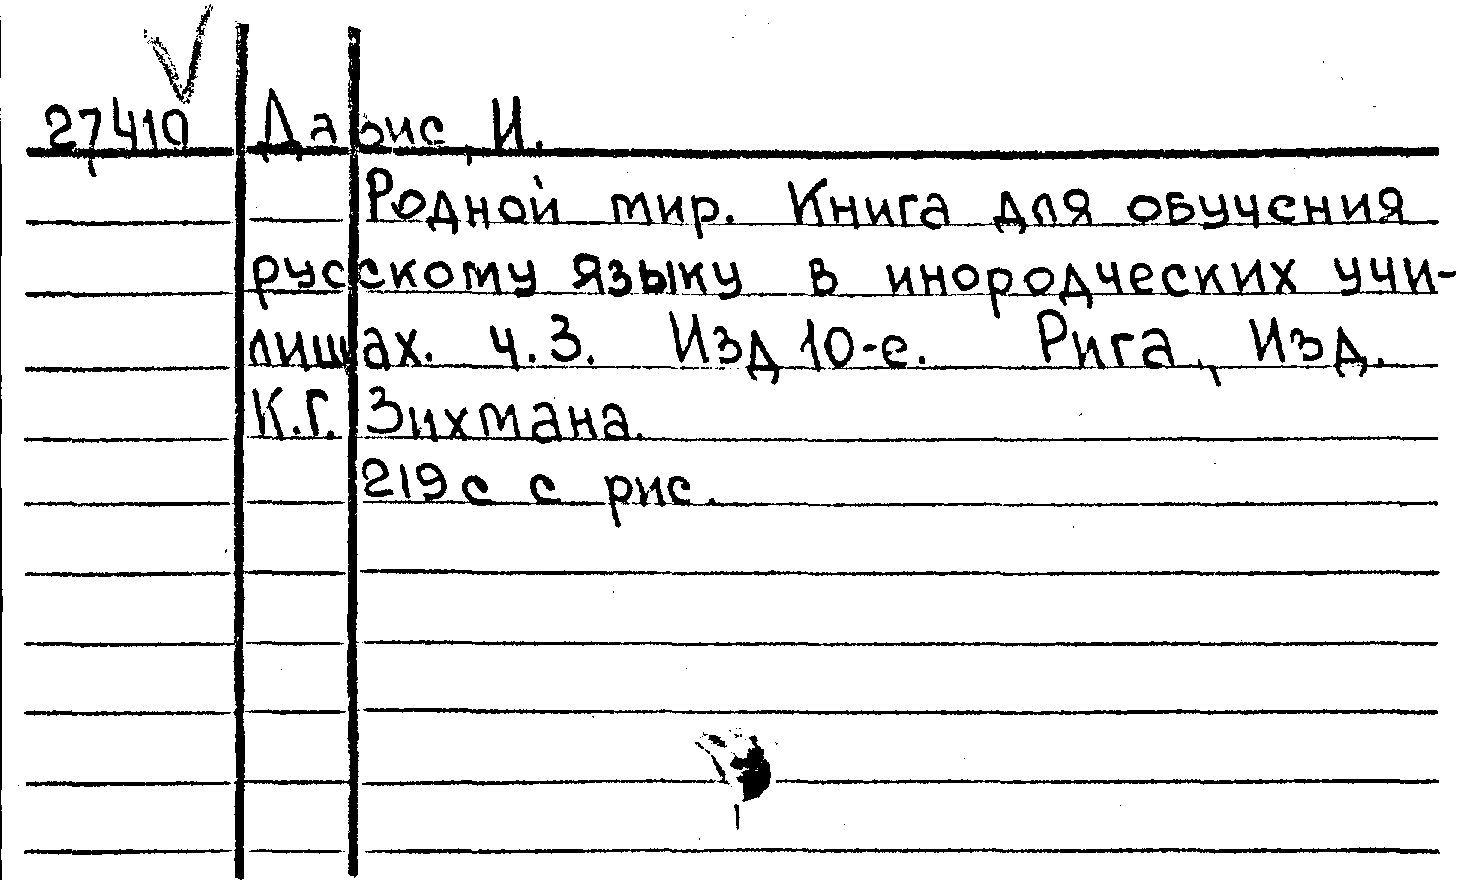 27410 Давис, И.
Родной мир. Книга для обучения
русскому языку в инородческих учи-
лищах. ч.3. Изд 10-е. Рига, Изд.
К.Г. Зихмана.
219 с с рис.